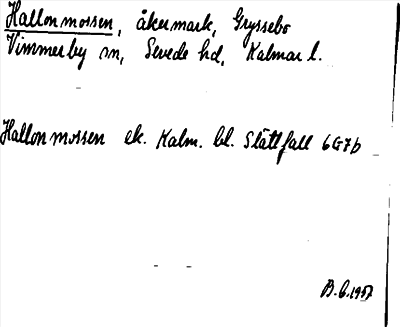 Hallonmossen, åkermark, Gryssebo
Vimmerby sn, Sevede hd, Kalmar l.
Hallonmossen ek. Kalm. bl. Slättfall 6G7b
B.G.1957